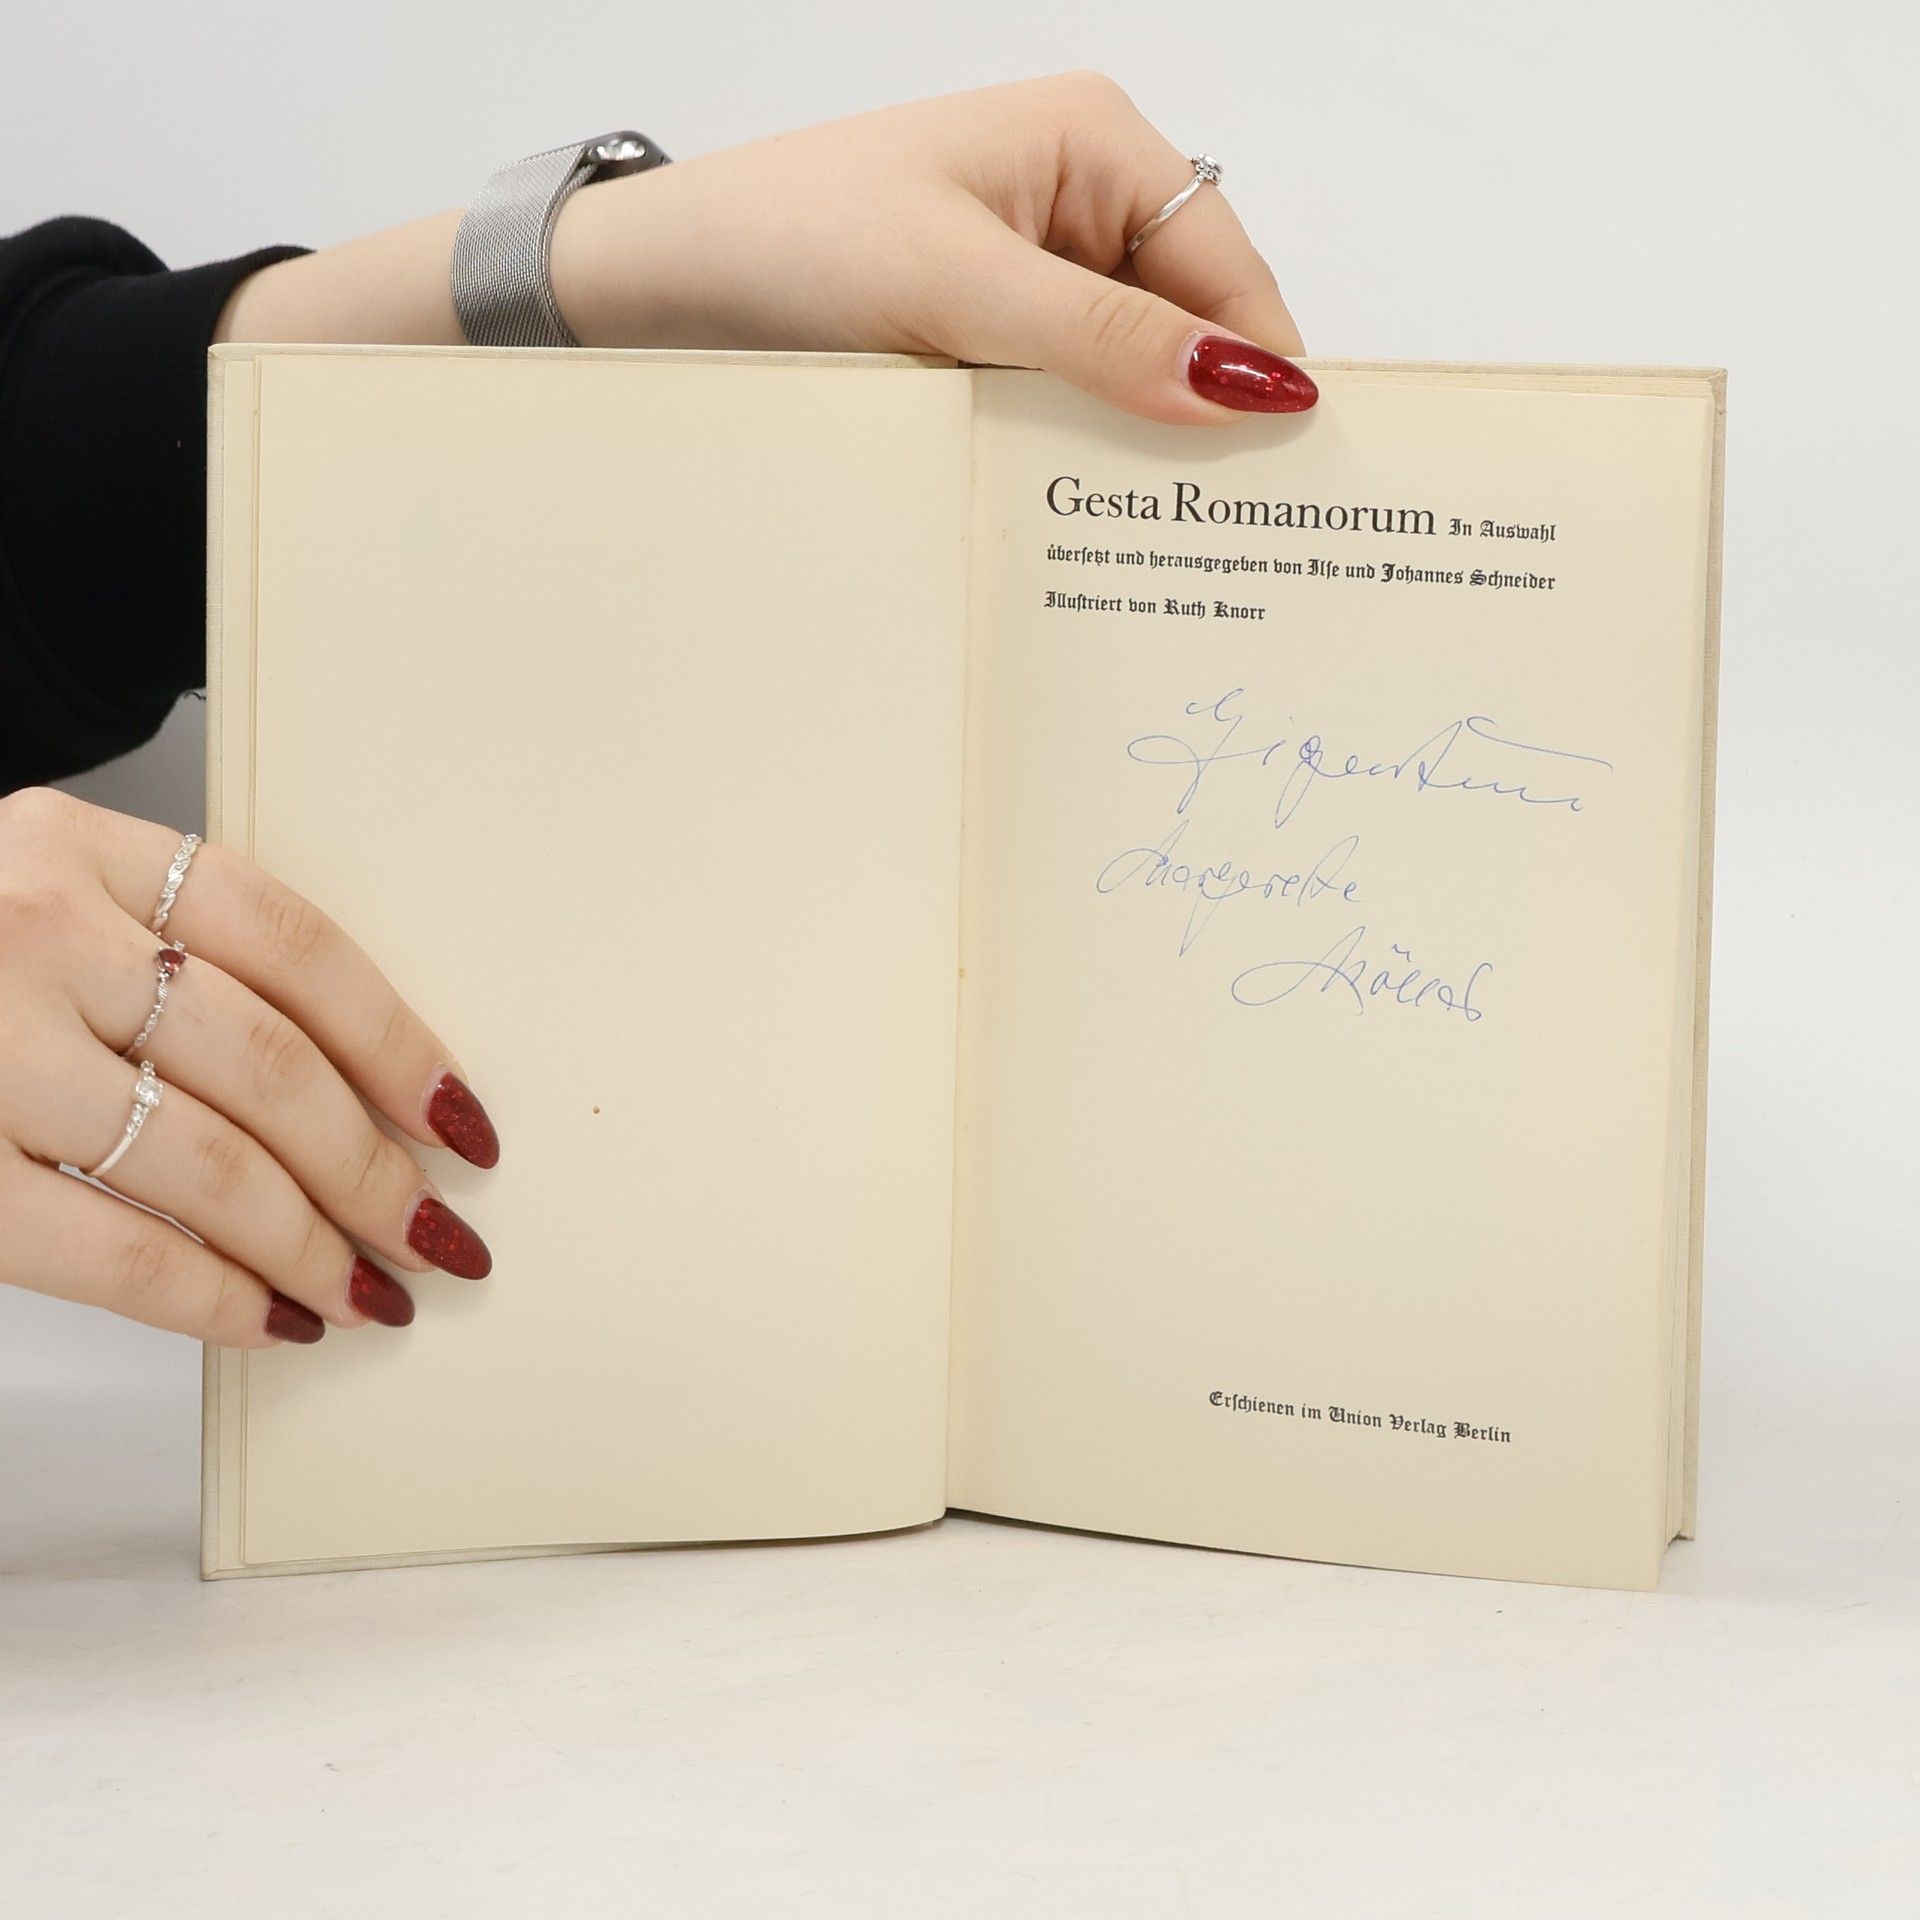 Gesta Romanorum In Auswahl
überſetzt und herausgegeben von Ilſe und Johannes Schneider
Illuſtriert von Ruth Knorr
Eigentum
Margarete
Erſchienen im Union Verlag Berlin